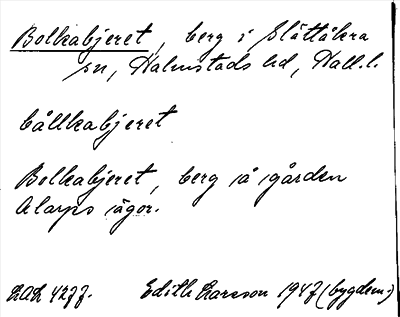 Bolkabjeret, berg i Slättåkra
sn, Halmstads hd, Hall.l.
bållkabjeret
Bolkabjeret, berg å gården
Alarps ägor.
LAL 4277. Edith Larsson 1947 (bygdem.)